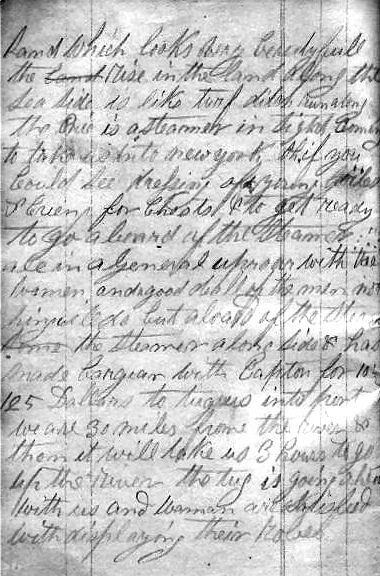 Land Which looks very beautyfull
the Land Rise in the land along the
sea side is like turf ditch run along
the is a steamer in sight Coming
to take us into new york Oh if you
Could see dressing of young
& for Chests & to get ready
to go a board of the Steamer
are in a General uproar with the
Women and a good deall of the men not
but aboard of the
the Steamer along side & has
made Bargian with Capton for
125 Dollars to tug us into port
We are 30 miles from the river &
then it will take us 3 hours to go
up the river the tug is going ahead
With us and Woman are
with displaying their Robes